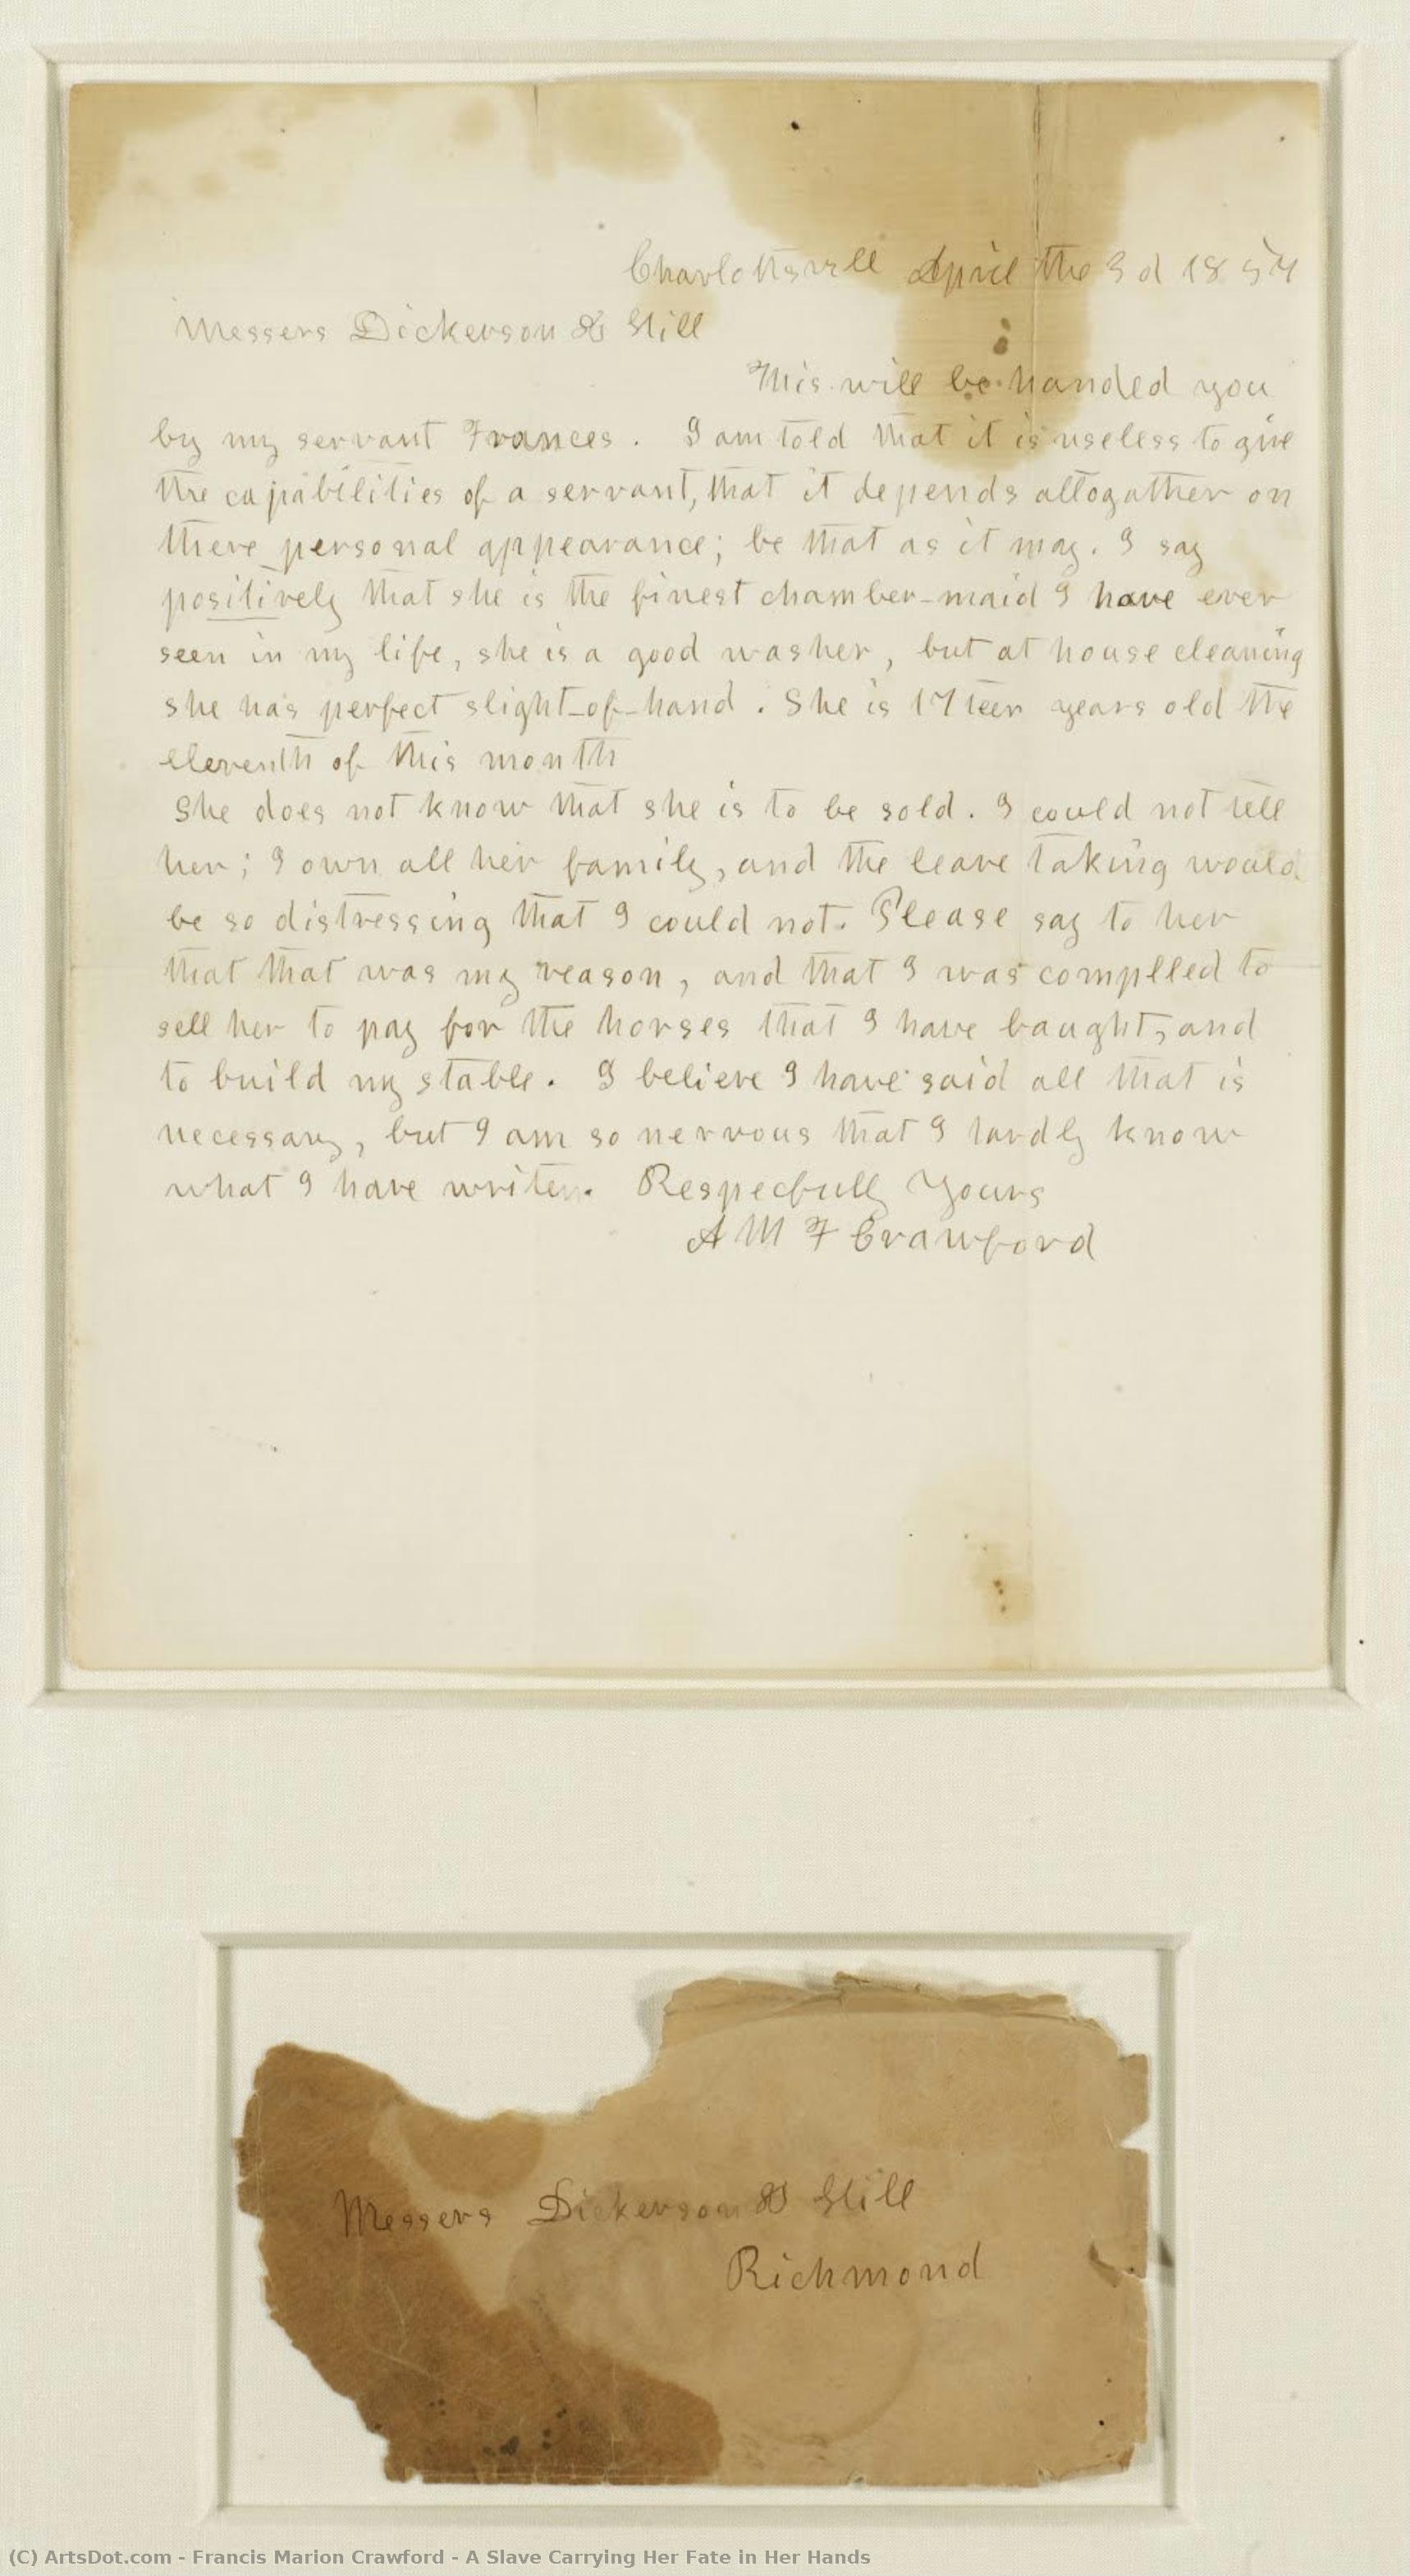 Charlottsvill April the 3d 1854
Messers Dickerson & Hill
This will be handed you
by my servant Frances. I am told that it is useless to give
the capabilities of a servant, that it depends altogather on
there personal appearance; be that as it may. I say
positively that she is the finest chamber-maid I have ever
seen in my life, she is a good washer, but at house cleaning
she has perfect slight-of-hand. She is 17teen years old the
eleventh of this month
She does not know that she is to be sold. I could not tell
her; I own all her family, and the leave taking would
be so distressing that I could not. Please say to her
that that was my reason, and that I was complled to
sell her to pay for the horses that I have baught, and
to build my stable. I believe I have said all that is
necessary, but I am so nervous that I hardly know
what I have writen. Respecfully Yours
A M F Crawford
Messers Dickerson & Hill
Richmond
(C) ArtsDot.com - Francis Marion Crawford - A Slave Carrying Her Fate in Her Hands